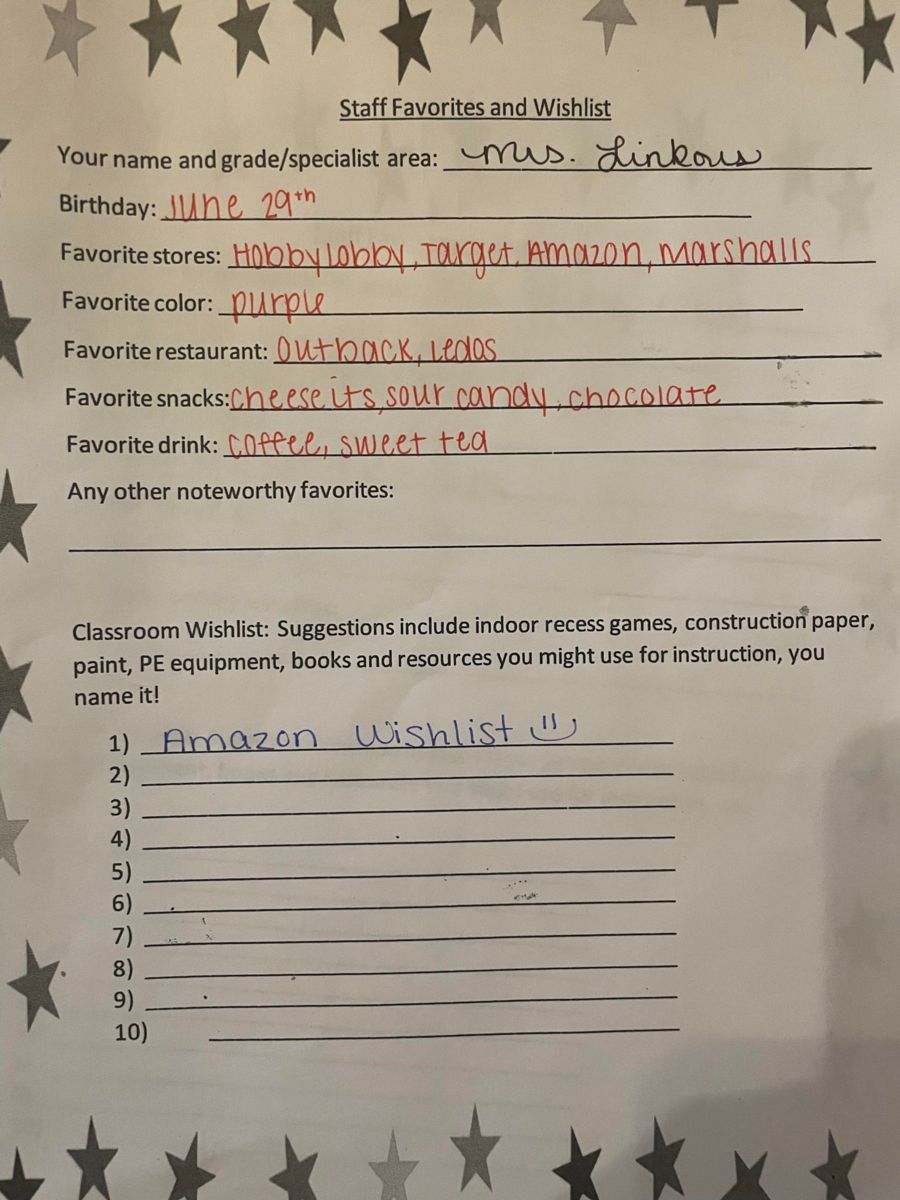 Staff Favorites and Wishlist
Your name and grade/specialist area: Mrs. Linkous
Birthday: June 29th
Favorite stores: Hobbylobby, Target, Amazon, Marshalls
Favorite color: purple
Favorite restaurant: Outback, Ledos
Favorite snacks: cheeseits, sour candy, chocolate
Favorite drink: coffee, sweet tea
Any other noteworthy favorites:
Classroom Wishlist: Suggestions include indoor recess games, construction paper,
paint, PE equipment, books and resources you might use for instruction, you
name it!
1) Amazon Wishlist
2)
3)
4)
5)
6)
7)
8)
9)
10)